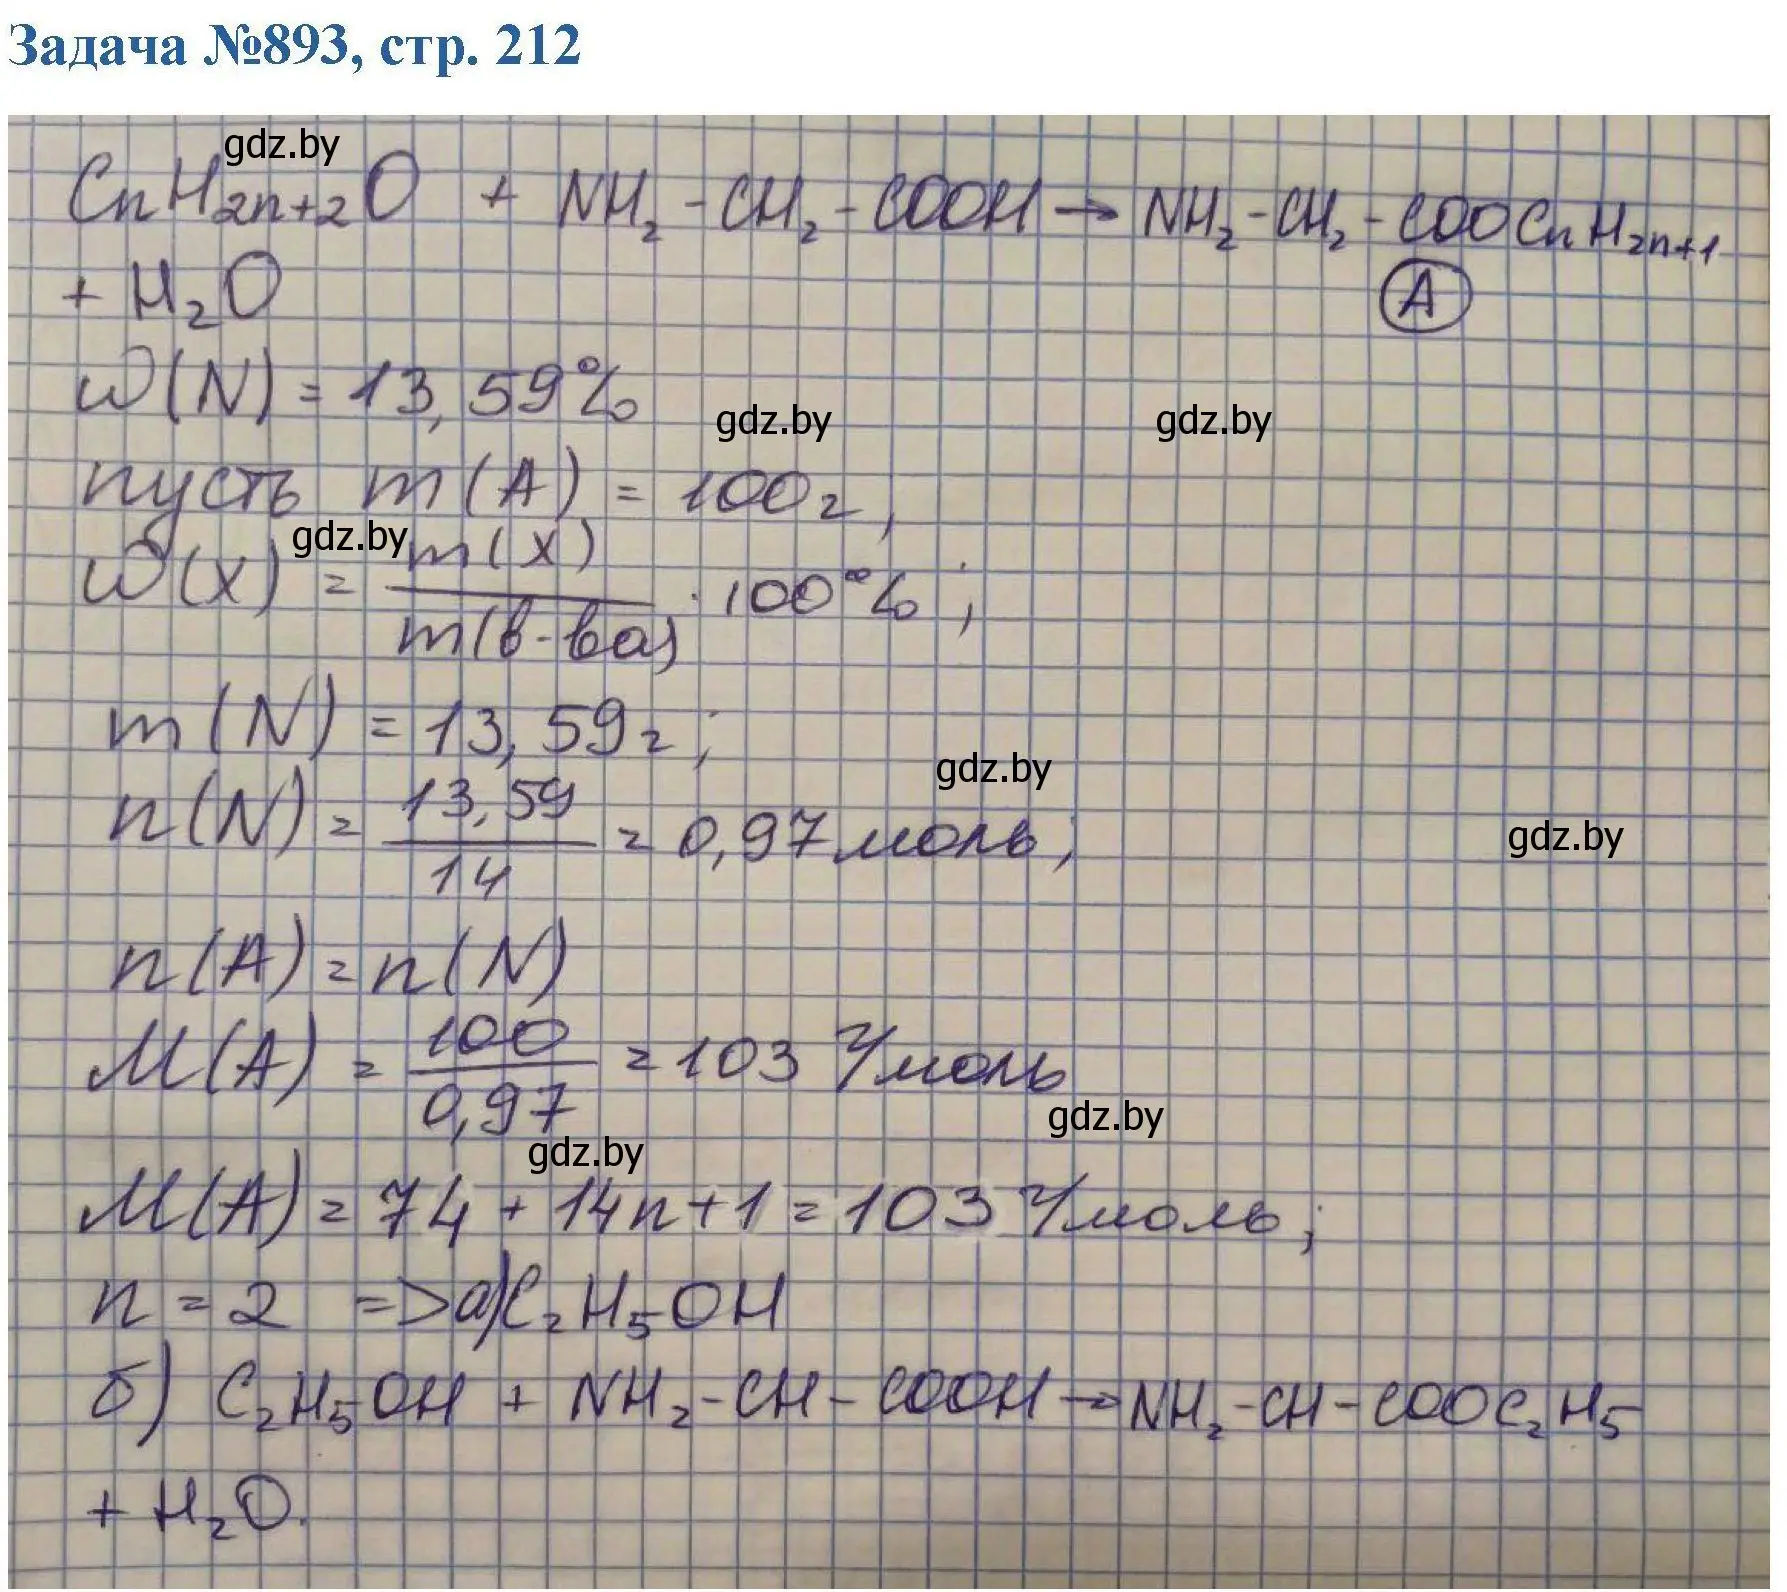 Задача №893, стр. 212
gdz.by
CnH2n+2O + NH2-CH2-COOH → NH2-CH2-COOCnH2n+1
+ H2O
A
ω(N) = 13,59%
gdz.by gdz.by
пусть m(A) = 100г,
gdz.by
ω(x) = m(x)/m(в-ва) · 100%;
m(N) = 13,59г;
gdz.by
n(N) = 13,59/14 = 0,97 моль;
gdz.by
n(A) = n(N)
M(A) = 100/0,97 = 103 г/моль
gdz.by
gdz.by
M(A) = 74 + 14n + 1 = 103 г/моль;
n = 2 => а) C2H5OH
б) C2H5OH + NH2-CH-COOH → NH2-CH-COOC2H5
+ H2O.